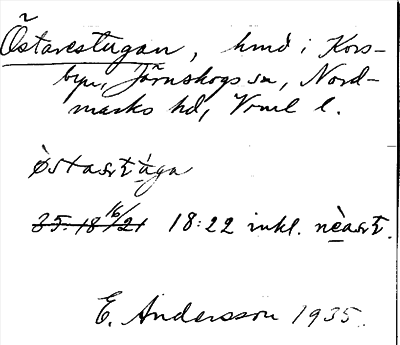 Östarestugan, hmd i Kors-
byn, Järnskogs sn, Nord-
marks hd, Vrml l.
òstaʂtʉ̀ga
35:18 16/21 18:22 inkl. nèaʂt.
E. Andersson 1935.